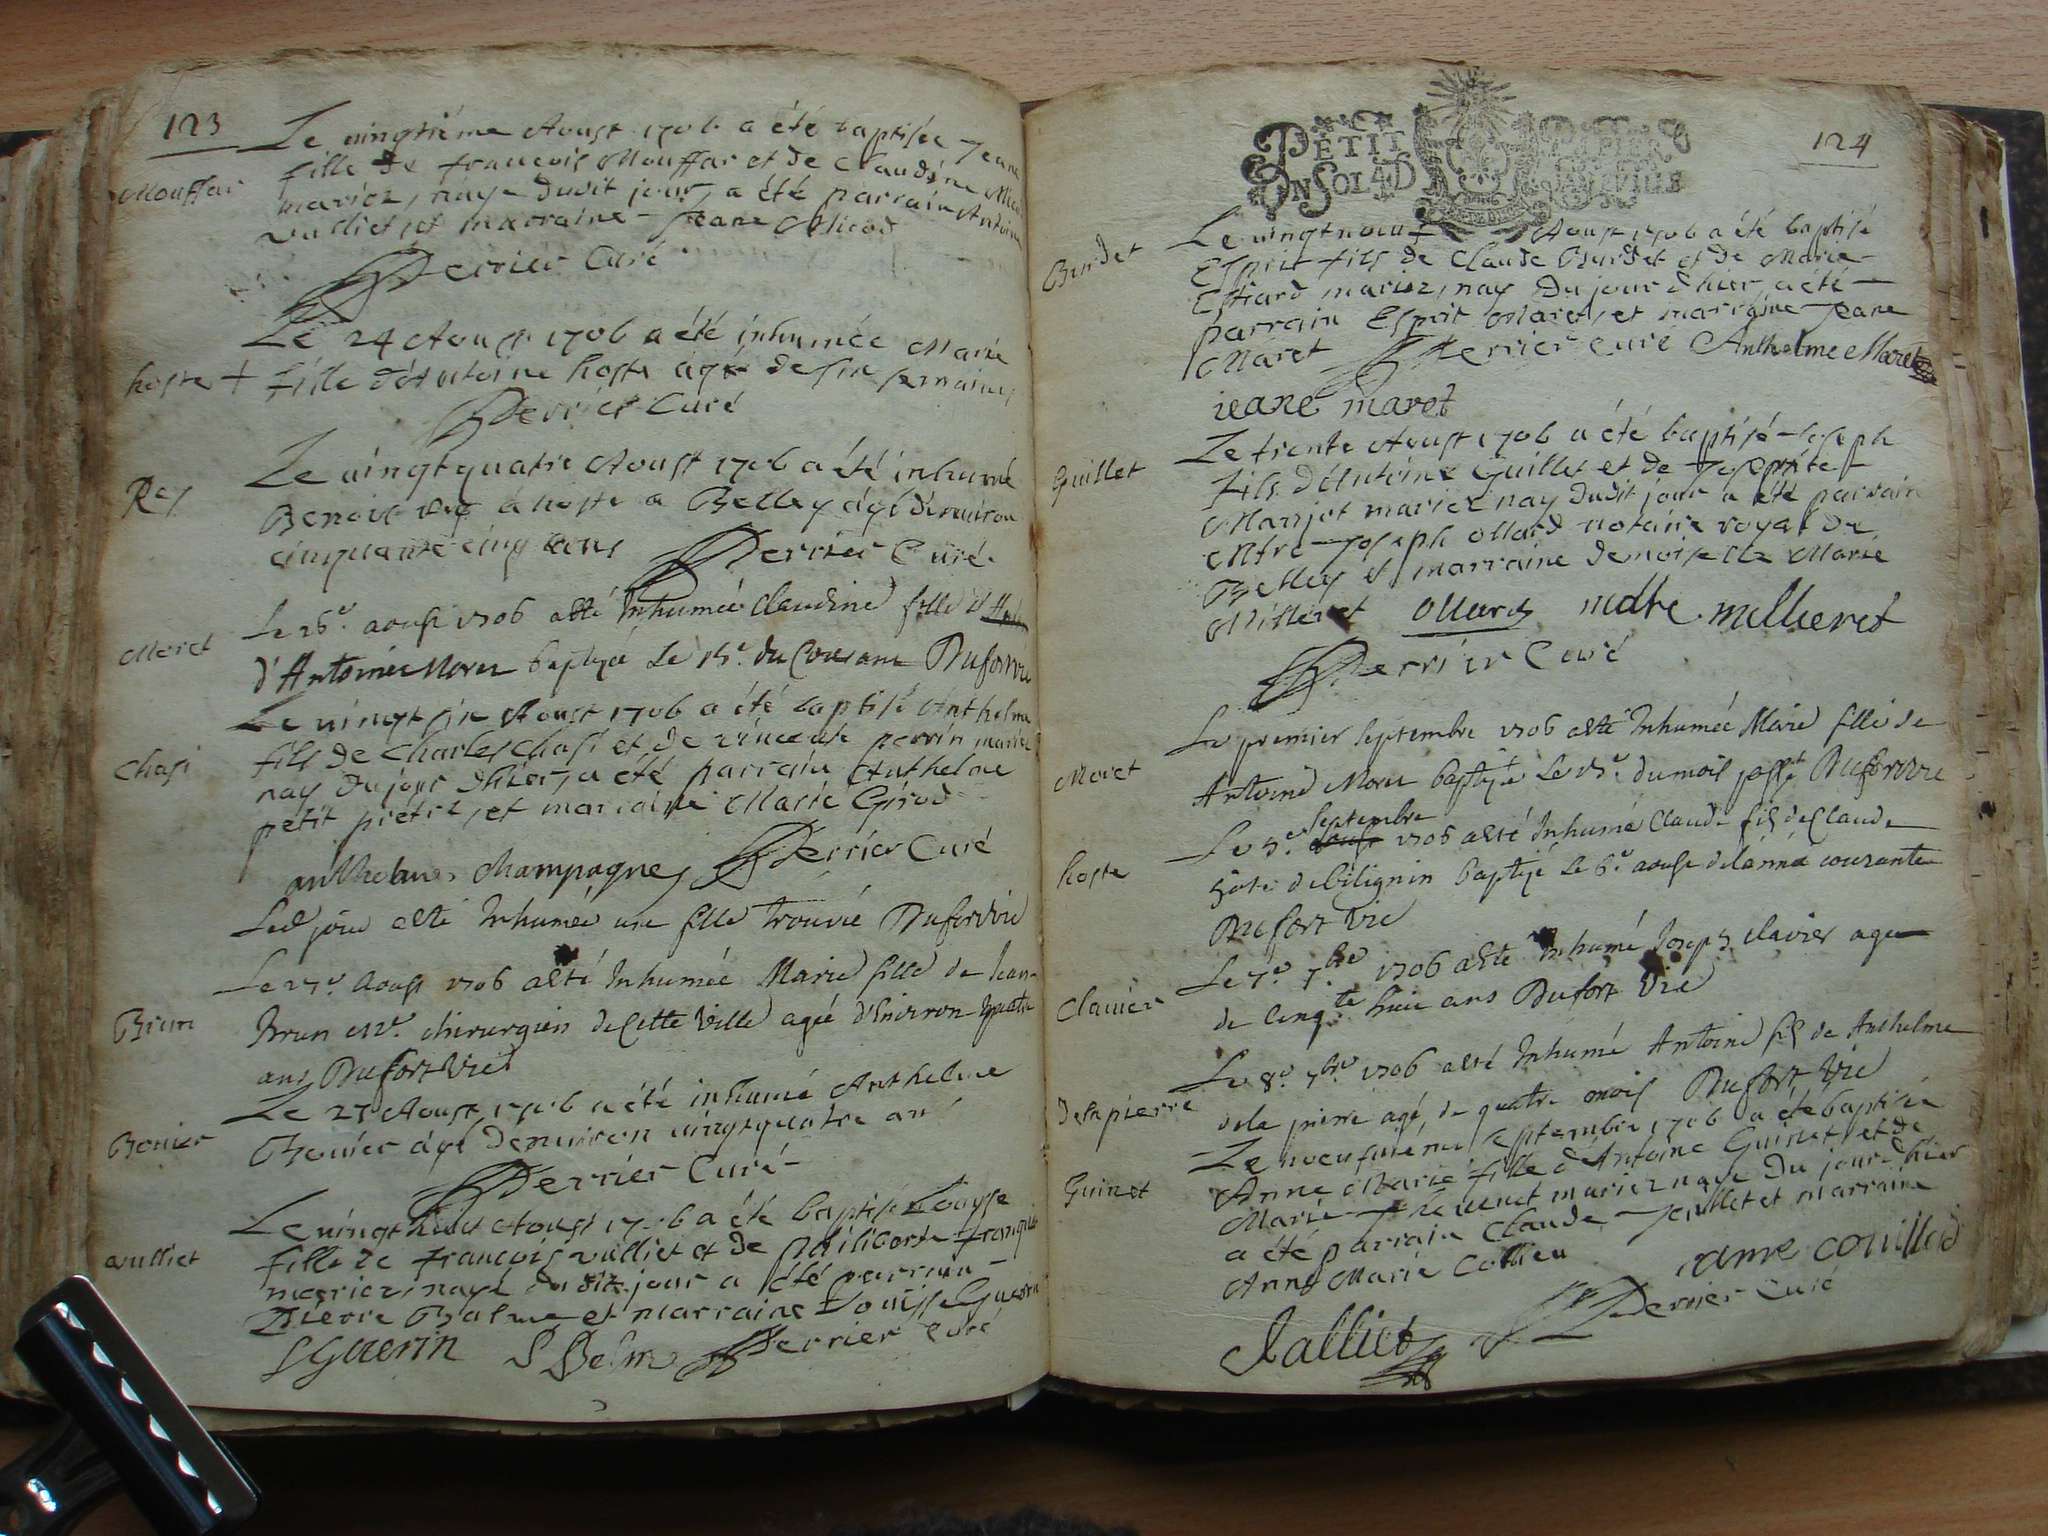 123
Le vingtiéme Aoust 1706 a été baptisée Jeane
Mouffar
fille de francois Mouffar et de Claudine
mariez, naye dudit jour, a été parrain Antoine
vulliet, et marraine Jeane Micod
Perrier Curé
Le 24 Aoust 1706 a été inhumée Marie
hoste +
fille d'Antoine hoste agée de six semaines
Perrier Curé
Le vingtquatre Aoust 1706 a été inhumé
Rey
Benoit Rey à hoste a Belley agé d'environ
cinquante cinq ans Perrier Curé
Le 26e. aoust 1706 a esté Inhumée Claudine fille d'
Moret
d'Antoine Moret baptisée Le 15e. du Courant Dufort vic
Le vingt six Aoust 1706 a été baptisé Anthelme
Chasi
fils de Charles Chasi et de vincente perrin mariez
nay du jour d'hier, a été parrain Anthelme
petit pretre, et marraine Marie Girod
anthelme champagne Perrier Curé
Led jour a esté Inhumée une fille trouvée Dufort vic
Le 27e. Aoust 1706 a esté Inhumée Marie fille de Jean
Brun
Brun Mre. chirurgien de Cette Ville agée d'Environ quatre
ans Dufort Vic
Le 27 Aoust 1706 a été inhumé Anthelme
Bouier
Bouier agé denviron vingtquatre an
Perrier Curé
Le vingthuit Aoust 1706 a été baptisée Louysse
vulliet
fille de francois vulliet et de philiberte
mariez, naye du dit jour a été parrain
Pierre Balme et marraine Louisse Guerin
L Guerin P Balm Perrier Curé
PETIT PAPIER
UN SOL 4 D LA FEUILLE
124
Le vingtneuf Aoust 1706 a été baptisé
Burdet
Esprit fils de Claude Burdet et de Marie
mariez, nay du jour d'hier, a été
parrain Esprit Maret, et marraine Jeane
Maret Perrier curé Anthelme Maret
ieane maret
Le trente Aoust 1706 a été baptisé Joseph
Guillet
fils d'Antoine Guillet et de Josephte
Marjot mariez nay dudit jour a été parrain
Mtre Joseph Ollard notaire royal de
Belley et marraine demoiselle Marie
Millieret Ollard marie millieret
Perrier Curé
Le premier septembre 1706 a esté Inhumée Marie fille de
Moret
Antoine Moret baptisée Le 15e. du mois passé Dufort vic
septembre
Le 5e. aoust 1706 a esté Inhumé Claude fils de Claude
hoste
hoste de Cilignin baptisé Le 6e. aoust de l'année courante
Dufort Vic
Le 7e 7bre 1706 a esté Inhumé Joseph clavier agé
Clavier
de Cinqte huit ans Dufort Vic
Le 8e. 7bre. 1706 a esté Inhumé Antoine fils de Anthelme
Delapierre
de la pierre agé de quatre mois Dufort Vic
Le neufuieme septembre 1706 a été baptisée
Guinet
Anne Marie fille d'Antoine Guinet et de
Marie Thevenet mariez naye du jour d'hier
a été parrain Claude Jalliet et marraine
Anne Marie Collieu anne couilloud
Jalliet Perrier Curé